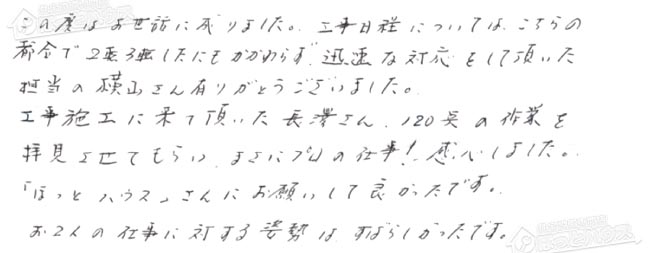 この度はお世話に成りました。工事日程については、こちらの
都合で2転3転したにもかかわらず、迅速な対応をして頂いた
担当の横山さん有りがとうございました。
工事施工に来て頂いた長澤さん、120%の作業を
拝見させてもらい、まさにプロの仕事!感心しました。
「ほっとハウス」さんにお願いして良かったです。
お2人の仕事に対する姿勢は、すばらしかったです。